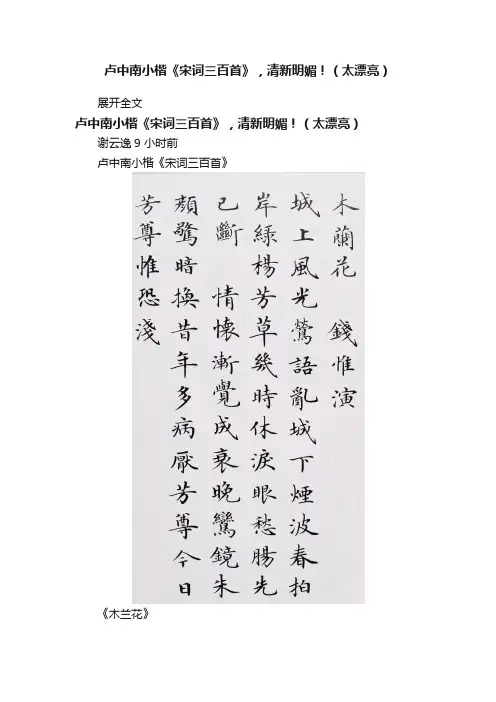 卢中南小楷《宋词三百首》，清新明媚！（太漂亮）
展开全文
卢中南小楷《宋词三百首》，清新明媚！（太漂亮）
谢云逸9 小时前
卢中南小楷《宋词三百首》
木蘭花 錢惟演
城上風光鶯語亂城下煙波春拍
岸綠楊芳草幾時休淚眼愁腸先
已斷 情懷漸覺成衰晚鸞鏡朱
顏驚暗換昔年多病厭芳尊今日
芳尊惟恐淺
《木兰花》